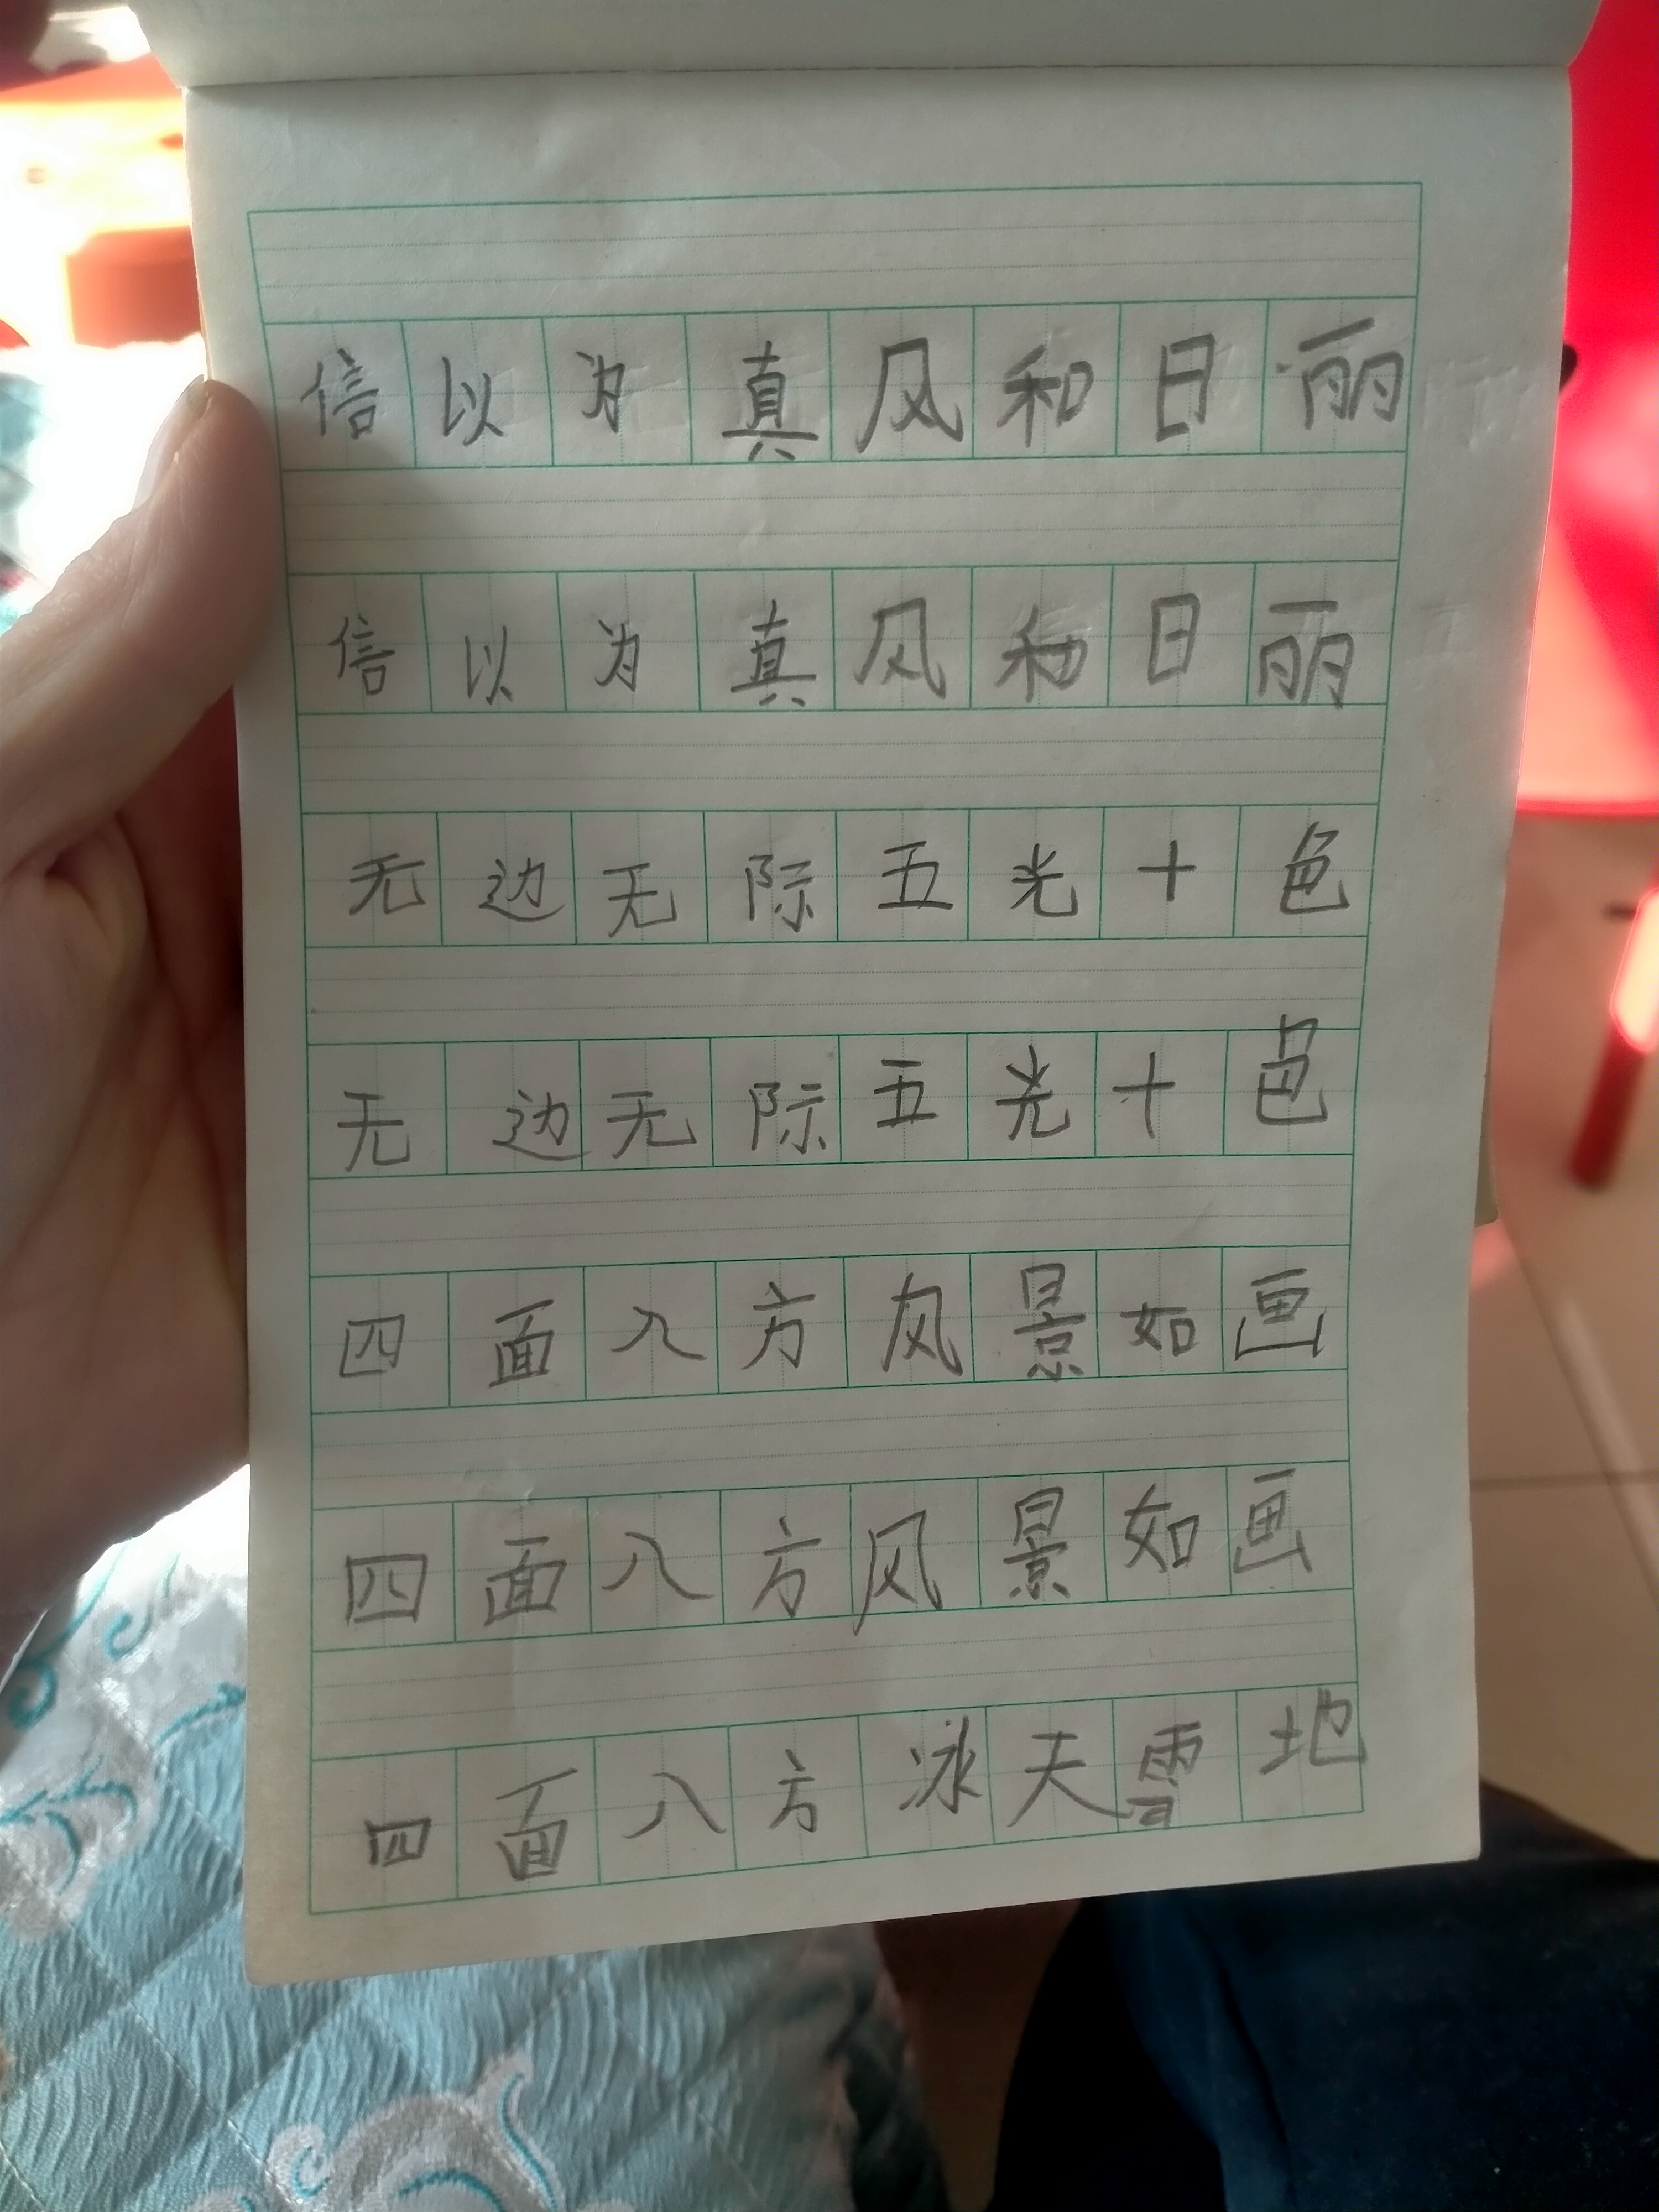 信以为真风和日丽
信以为真风和日丽
无边无际五光十色
无边无际五光十色
四面八方风景如画
四面八方风景如画
四面八方冰天雪地